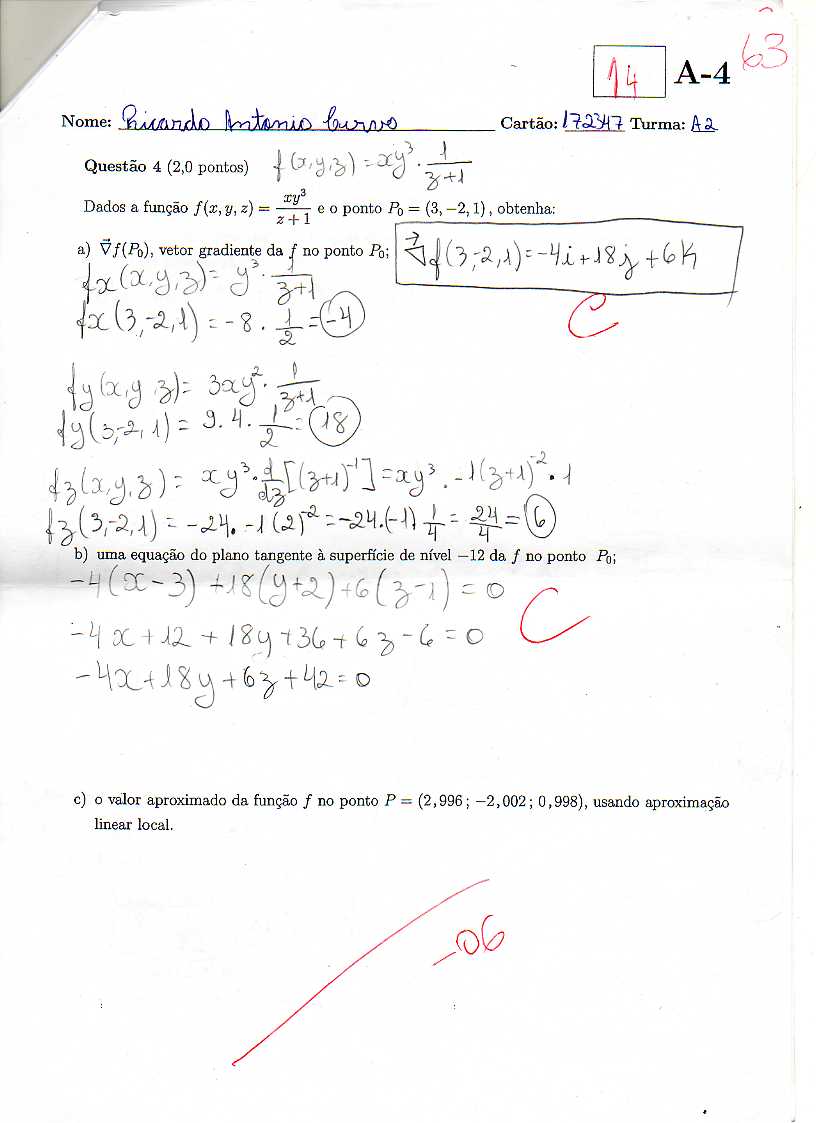 63
14 A-4
Nome: Ricardo Antonio Curvo Cartão: 172347 Turma: A2
Questão 4 (2,0 pontos) f(x,y,z) = xy³ · 1/(z+1)
Dados a função f(x, y, z) = xy³/(z + 1) e o ponto P₀ = (3, −2, 1) , obtenha:
a) ∇⃗f(P₀), vetor gradiente da f no ponto P₀; ∇⃗f(3,-2,1) = -4i + 18j + 6k
fx(x,y,z) = y³ · 1/(z+1)
C
fx(3,-2,1) = -8 · 1/2 = -4
fy(x,y,z) = 3xy² · 1/(z+1)
fy(3,-2,1) = 9.4 · 1/2 = 18
fz(x,y,z) = xy³ · d/dz[(z+1)⁻¹] = xy³ · -1(z+1)⁻² · 1
fz(3,-2,1) = -24 · -1(2)⁻² = -24·(-1) 1/4 = 24/4 = 6
b) uma equação do plano tangente à superfície de nível −12 da f no ponto P₀;
-4(x-3) + 18(y+2) + 6(z-1) = 0
C
-4x + 12 + 18y + 36 + 6z - 6 = 0
-4x + 18y + 6z + 42 = 0
c) o valor aproximado da função f no ponto P = (2,996 ; −2,002 ; 0,998), usando aproximação
linear local.
-06